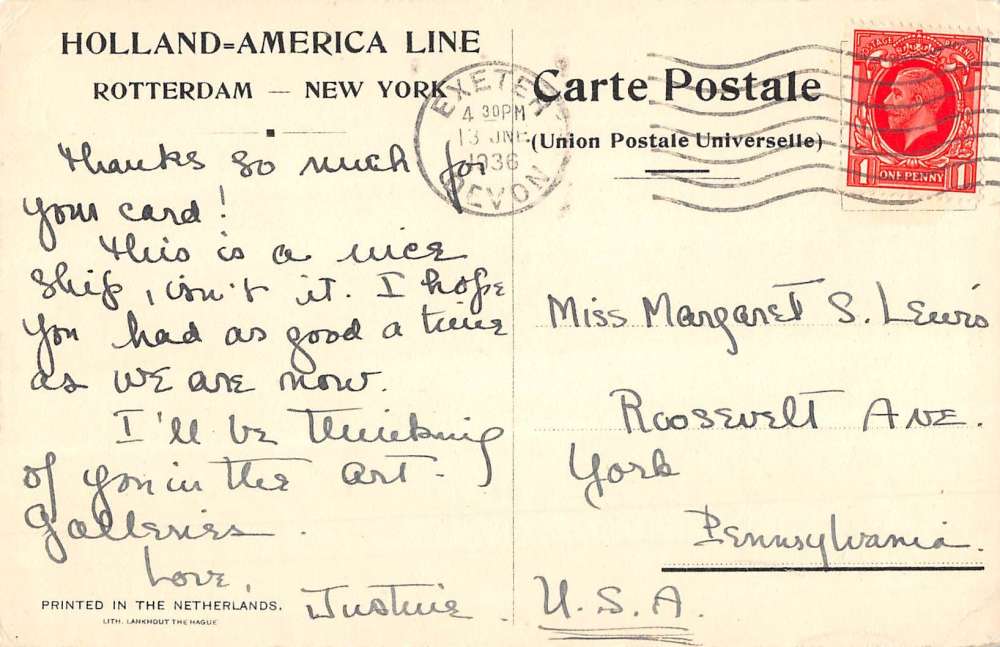 HOLLAND=AMERICA LINE
ROTTERDAM — NEW YORK
Thanks so much for
your card!
This is a nice
ship, isn't it. I hope
you had as good a time
as we are now.
I'll be thinking
of you in the art-
galleries.
Love,
Justine
PRINTED IN THE NETHERLANDS.
LITH. LANKHOUT THE HAGUE
EXETER
4 30 PM
13 JNE
1936
DEVON
Carte Postale
(Union Postale Universelle)
POSTAGE REVENUE
1 ONE PENNY 1
Miss Margaret S. Lewis
Roosevelt Ave.
York
Pennsylvania.
U.S.A.